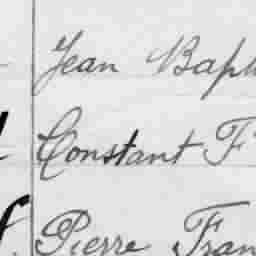 Jean Bapt
Constant F
Pierre Fran